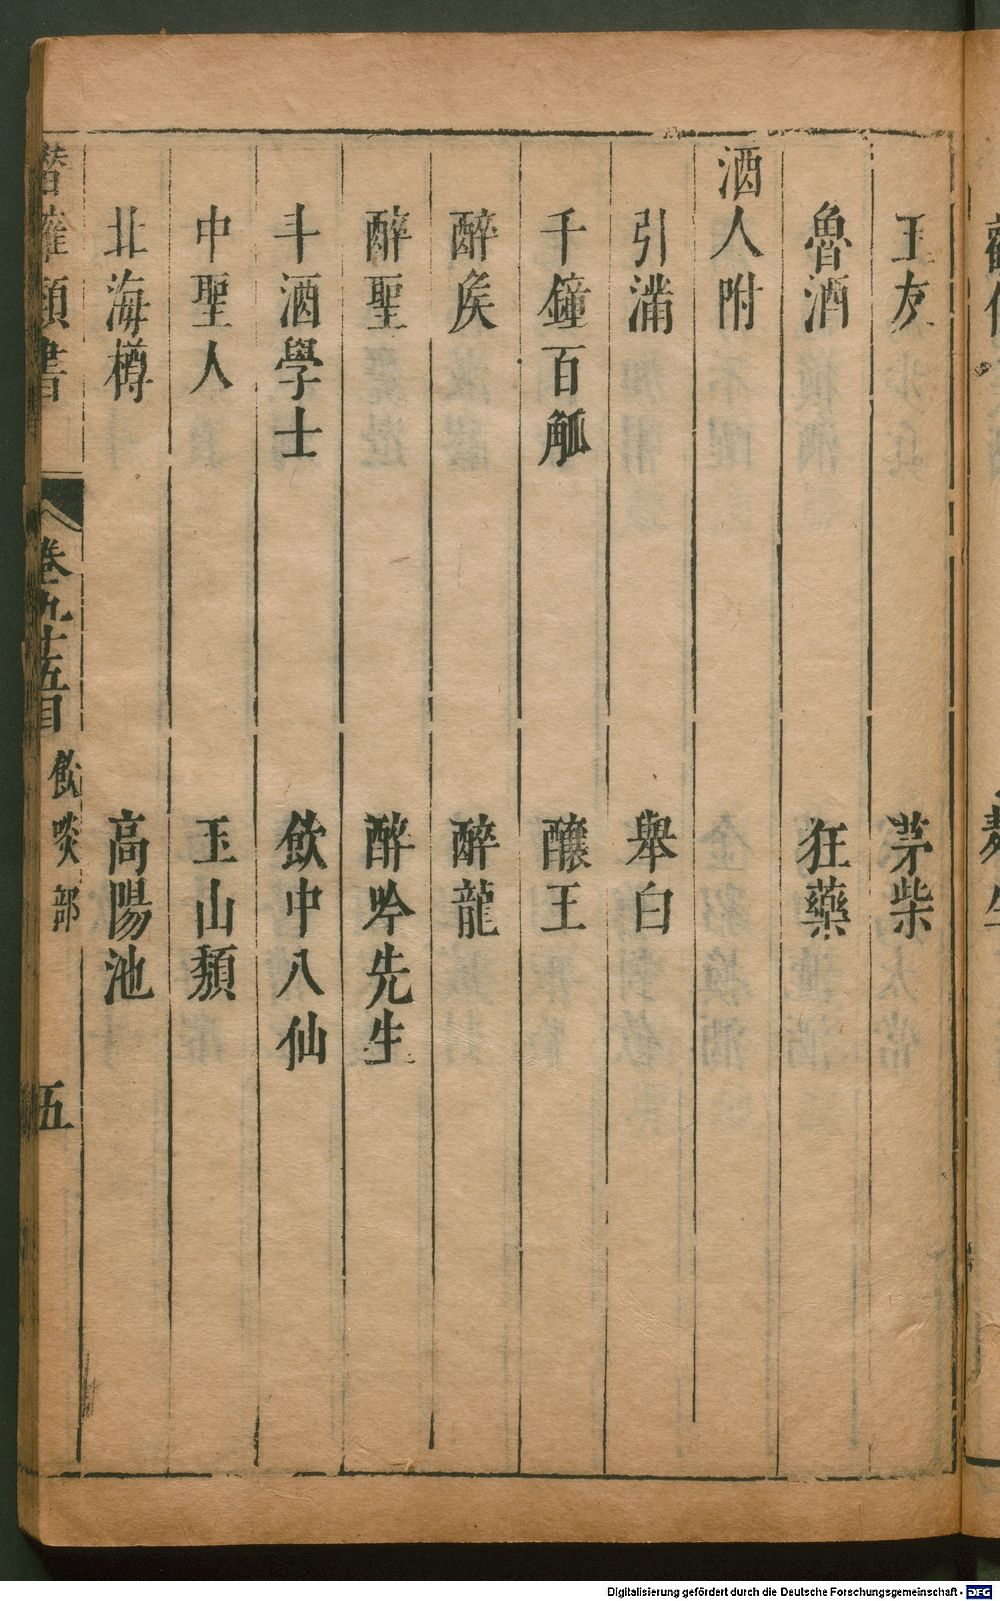 玉友 茅柴
魯酒 狂藥
酒人附
引滿 舉白
千鐘百觚 釀王
醉矦 醉龍
醉聖 醉吟先生
斗酒學士 飲中八仙
中聖人 玉山頹
北海樽 高陽池
潛確類書 卷九十五目 飲啖部 五
Digitalisierung gefördert durch die Deutsche Forschungsgemeinschaft - DFG